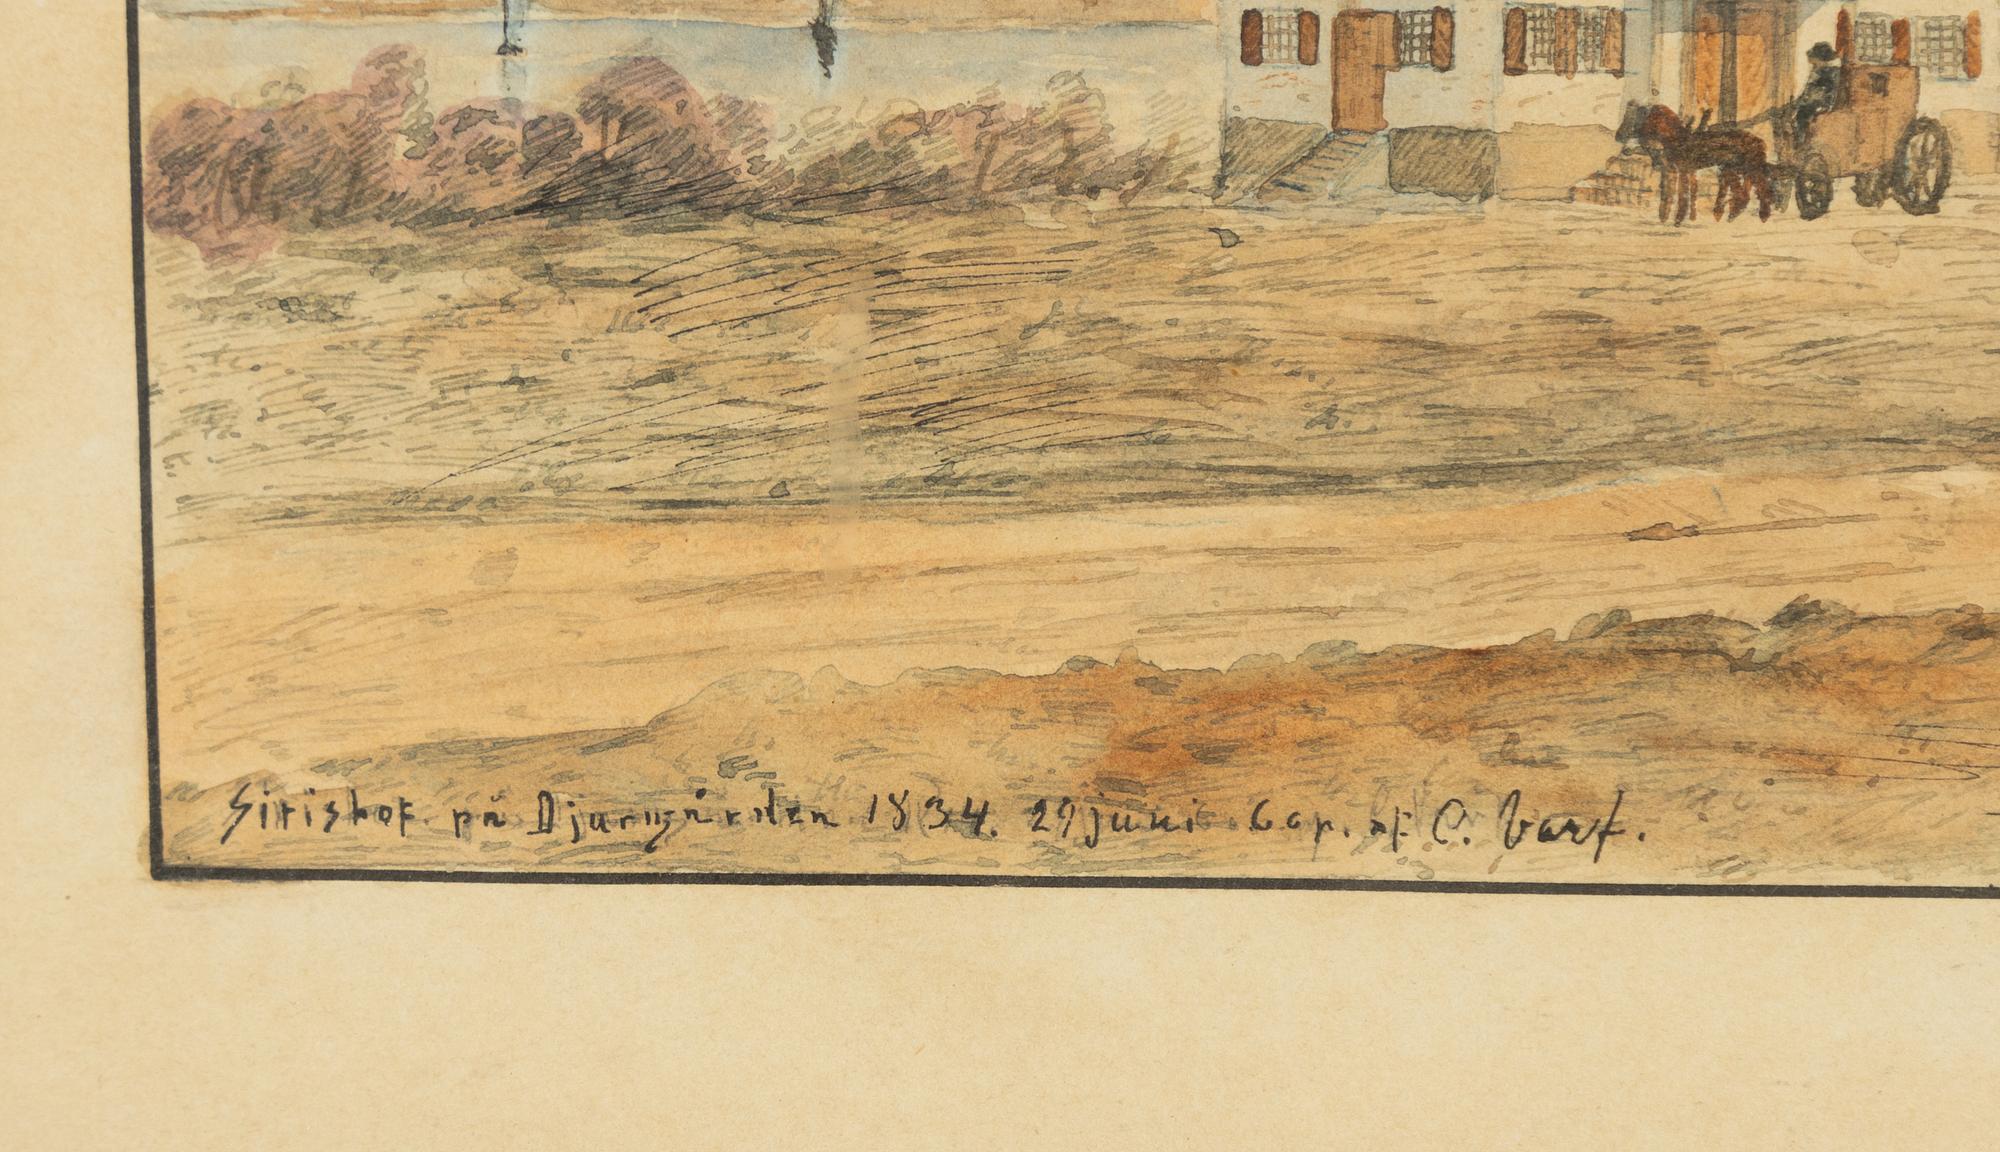 Sirishof på Djurgården 1834. 29 juni Cop. af C. Varf.